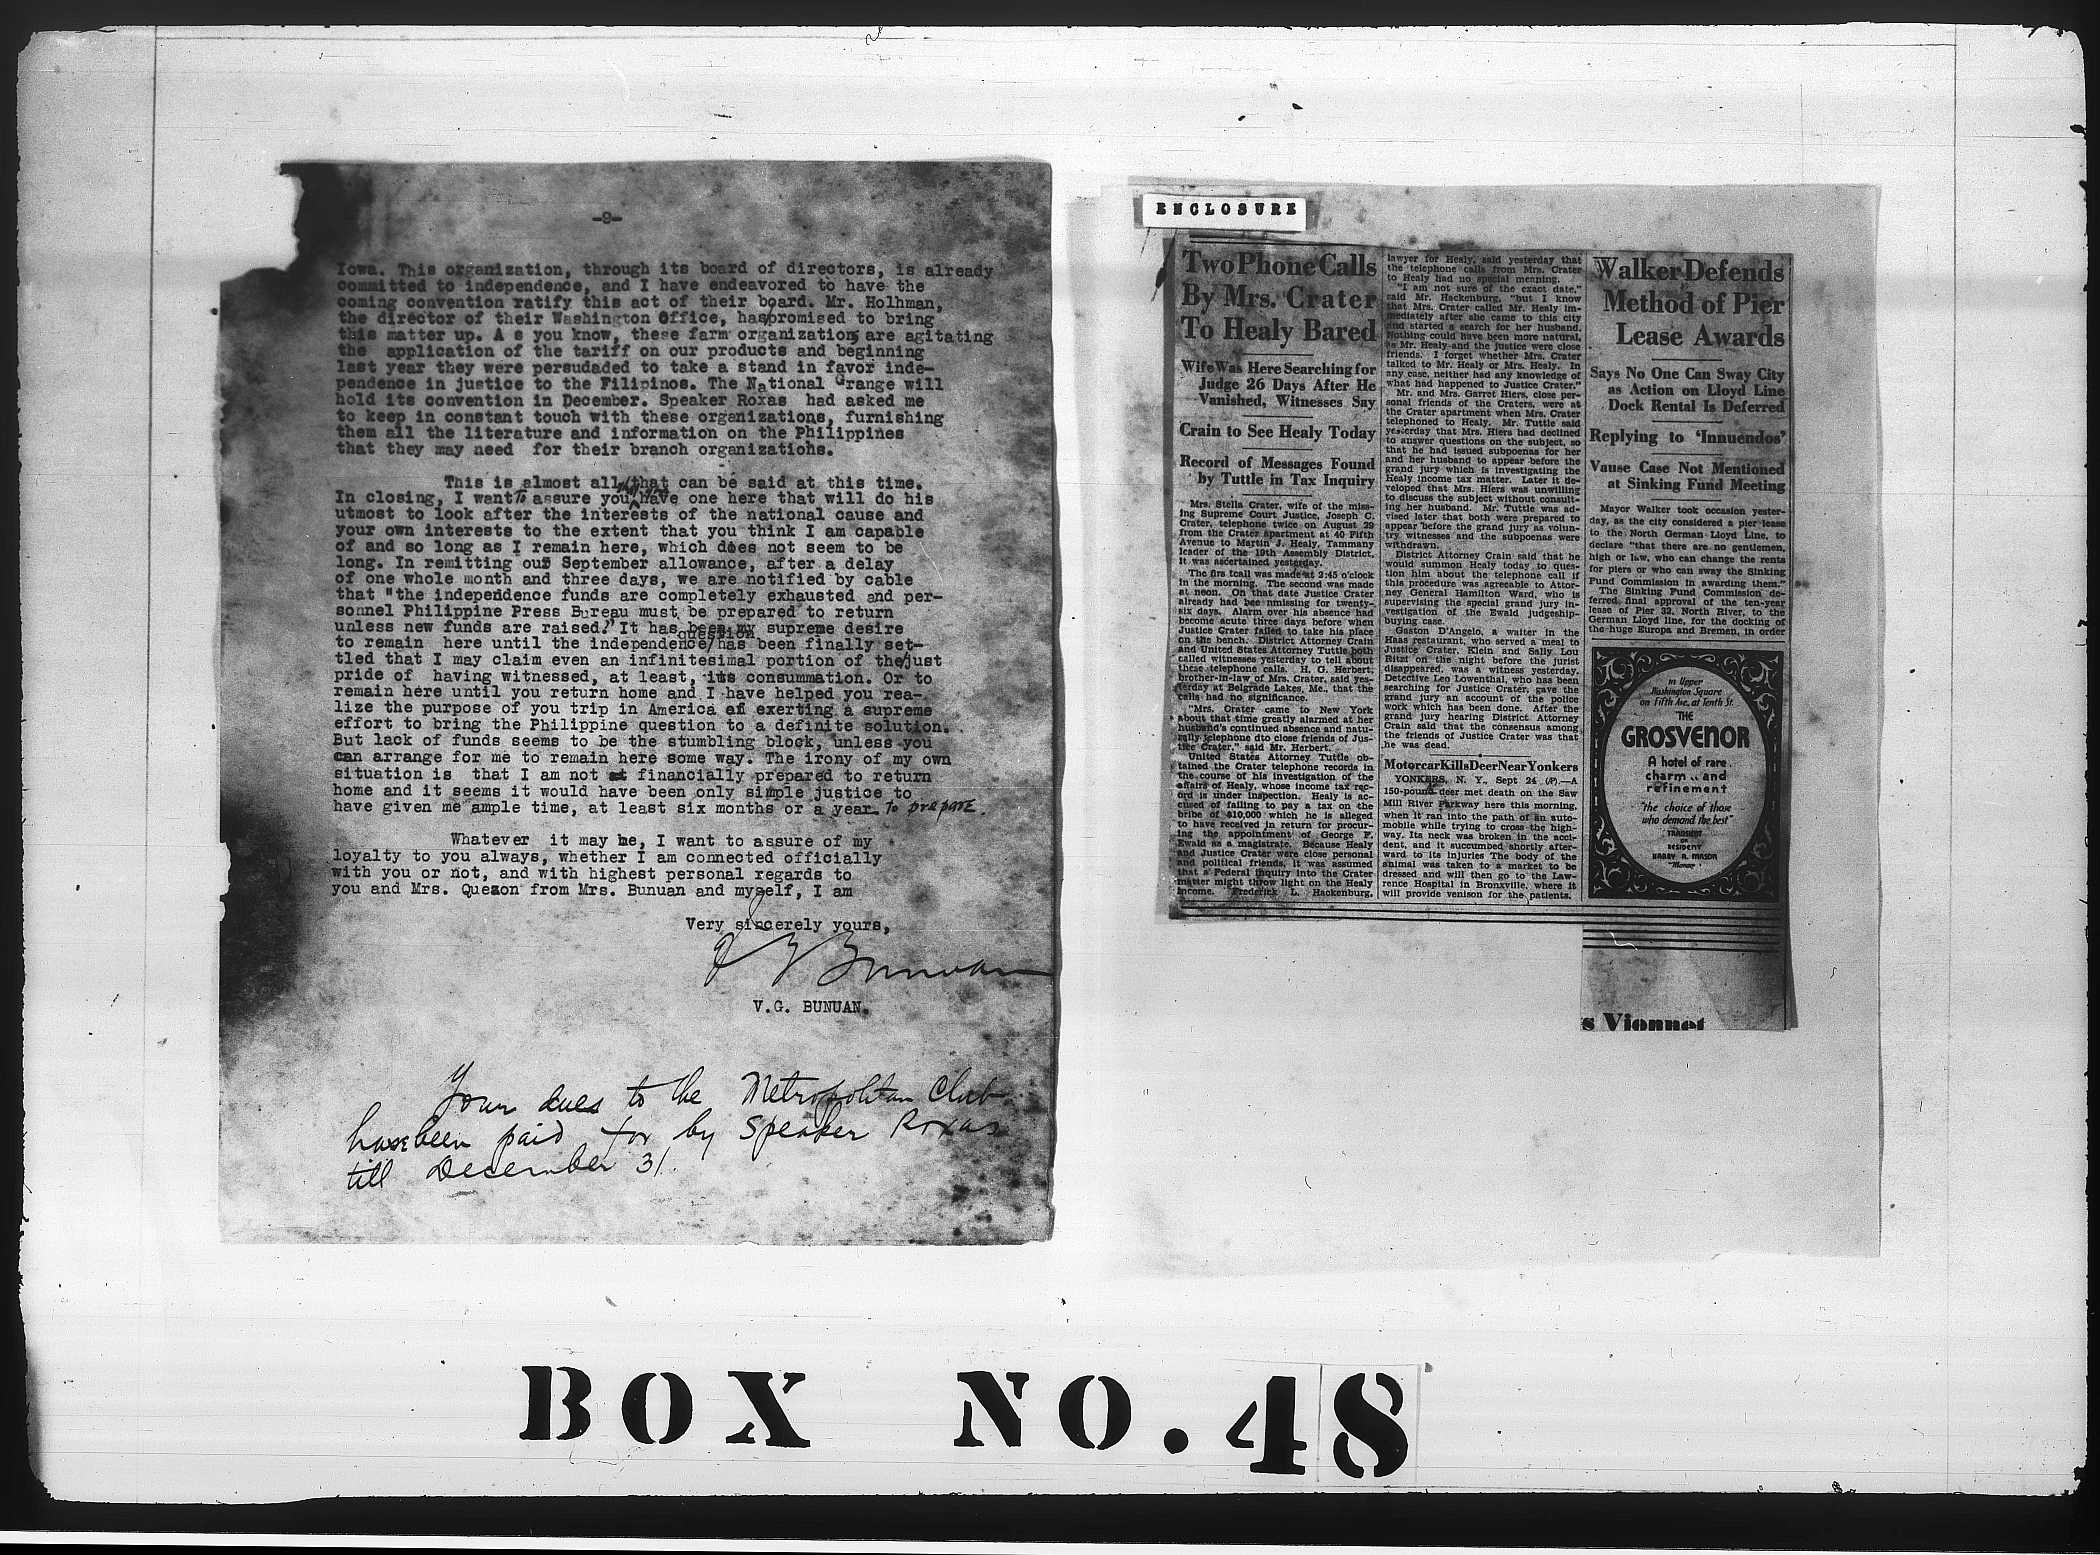 -9-
Iowa. This organization, through its board of directors, is already
committed to independence, and I have endeavored to have the
coming convention ratify this act of their board. Mr. Holhman,
the director of their Washington Office, has/promised to bring
this matter up. A s you know, these farm organizations are agitating
the application of the tariff on our products and beginning
last year they were persudaded to take a stand in favor inde-
pendence in justice to the Filipinos. The National Grange will
hold its convention in December. Speaker Roxas had asked me
to keep in constant touch with these organizations, furnishing
them all the literature and information on the Philippines
that they may need for their branch organizations.
This is almost all that can be said at this time.
In closing, I want to assure you have one here that will do his
utmost to look after the interests of the national cause and
your own interests to the extent that you think I am capable
of and so long as I remain here, which does not seem to be
long. In remitting our September allowance, after a delay
of one whole month and three days, we are notified by cable
that "the indepeidence funds are completely exhausted and per-
sonnel Philippine Press Bureau must be prepared to return
unless new funds are raised." It has been my supreme desire
question
to remain here until the independence/has been finally set-
tled that I may claim even an infinitesimal portion of the/just
pride of having witnessed, at least, its consummation. Or to
remain here until you return home and I have helped you rea-
lize the purpose of you trip in America of exerting a supreme
effort to bring the Philippine question to a definite solution.
But lack of funds seems to be the stumbling block, unless you
can arrange for me to remain here some way. The irony of my own
situation is that I am not financially prepared to return
home and it seems it would have been only simple justice to
have given me ample time, at least six months or a year to prepare.
Whatever it may be, I want to assure of my
loyalty to you always, whether I am connected officially
with you or not, and with highest personal regards to
you and Mrs. Quezon from Mrs. Bunuan and myself, I am
Very sincerely yours,
V G Bunuan
V.G. BUNUAN.
Your dues to the Metropolitan Club
have been paid for by Speaker Roxas
till December 31.
ENCLOSURE
Two Phone Calls
By Mrs. Crater
To Healy Bared
Wife Was Here Searching for
Judge 26 Days After He
Vanished, Witnesses Say
Crain to See Healy Today
Record of Messages Found
by Tuttle in Tax Inquiry
Mrs. Stella Crater, wife of the miss-
ing Supreme Court Justice, Joseph C.
Crater, telephone twice on August 29
from the Crater apartment at 40 Fifth
Avenue to Martin J. Healy, Tammany
leader of the 19th Assembly District,
it was ascertained yesterday.
The firs tcall was made at 2:45 o'clock
in the morning. The second was made
at neon. On that date Justice Crater
already had bee nmissing for twenty-
six days. Alarm over his absence had
become acute three days before when
Justice Crater failed to take his place
on the bench. District Attorney Crain
and United States Attorney Tuttle both
called witnesses yesterday to tell about
these telephone calls. H. G. Herbert,
brother-in-law of Mrs. Crater, said yes-
terday at Belgrade Lakes, Me., that the
calls had no significance.
"Mrs. Crater came to New York
about that time greatly alarmed at her
husband's continued absence and natu-
rally telephone dto close friends of Jus-
tice Crater," said Mr. Herbert.
United States Attorney Tuttle ob-
tained the Crater telephone records in
the course of his investigation of the
affairs of Healy, whose income tax rec-
ord is under inspection. Healy is ac-
cused of failing to pay a tax on the
bribe of $10,000 which he is alleged
to have received in return for procur-
ing the appointment of George F.
Ewald as a magistrate. Because Healy
and Justice Crater were close personal
and political friends, it was assumed
that a Federal inquiry into the Crater
matter might throw light on the Healy
income. Frederick L. Hackenburg,
lawyer for Healy, said yesterday that
the telephone calls from Mrs. Crater
to Healy had no special meaning.
"I am not sure of the exact date,"
said Mr. Hackenburg, "but I know
that Mrs. Crater called Mr. Healy im-
mediately after she came to this city
and started a search for her husband.
Nothing could have been more natural,
as Mr. Healy and the justice were close
friends. I forget whether Mrs. Crater
talked to Mr. Healy or Mrs. Healy. In
any case, neither had any knowledge of
what had happened to Justice Crater."
Mr. and Mrs. Garret Hiers, close per-
sonal friends of the Craters, were at
the Crater apartment when Mrs. Crater
telephoned to Healy. Mr. Tuttle said
yesterday that Mrs. Hiers had declined
to answer questions on the subject, so
that he had issued subpoenas for her
and her husband to appear before the
grand jury which is investigating the
Healy income tax matter. Later it de-
veloped that Mrs. Hiers was unwilling
to discuss the subject without consult-
ing her husband. Mr. Tuttle was ad-
vised later that both were prepared to
appear before the grand jury as volun-
try witnesses and the subpoenas were
withdrawn.
District Attorney Crain said that he
would summon Healy today to ques-
tion him about the telephone call if
this procedure was agreeable to Attor-
ney General Hamilton Ward, who is
supervising the special grand jury in-
vestigation of the Ewald judgeship-
buying case.
Gaston D'Angelo, a waiter in the
Haas restaurant, who served a meal to
Justice Crater, Klein and Sally Lou
Ritzi on the night before the jurist
disappeared, was a witness yesterday.
Detective Leo Lowenthal, who has been
searching for Justice Crater, gave the
grand jury an account of the police
work which has been done. After the
grand jury hearing District Attorney
Crain said that the consensus among
the friends of Justice Crater was that
he was dead.
Motorcar Kills Deer Near Yonkers
YONKERS, N. Y., Sept 24 (AP).—A
150-pound deer met death on the Saw
Mill River Parkway here this morning,
when it ran into the path of an auto-
mobile while trying to cross the high-
way. Its neck was broken in the acci-
dent, and it succumbed shortly after-
ward to its injuries The body of the
animal was taken to a market to be
dressed and will then go to the Law-
rence Hospital in Bronxville, where it
will provide venison for the patients.
Walker Defends
Method of Pier
Lease Awards
Says No One Can Sway City
as Action on Lloyd Line
Dock Rental Is Deferred
Replying to 'Innuendos'
Vause Case Not Mentioned
at Sinking Fund Meeting
Mayor Walker took occasion yester-
day, as the city considered a pier lease
to the North German Lloyd Line, to
declare "that there are no gentlemen,
high or law, who can change the rents
for piers or who can sway the Sinking
Fund Commission in awarding them."
The Sinking Fund Commission de-
ferred final approval of the ten-year
lease of Pier 32, North River, to the
German Lloyd line, for the docking of
the huge Europa and Bremen, in order
in Upper
Washington Square
on Fifth Ave. at Tenth St.
THE
GROSVENOR
A hotel of rare
charm .. and
refinement
"the choice of those
who demand the best"
TRANSIENT
OR
RESIDENT
HARRY A. MASON
"Manor"
s Vionnet
BOX NO. 48